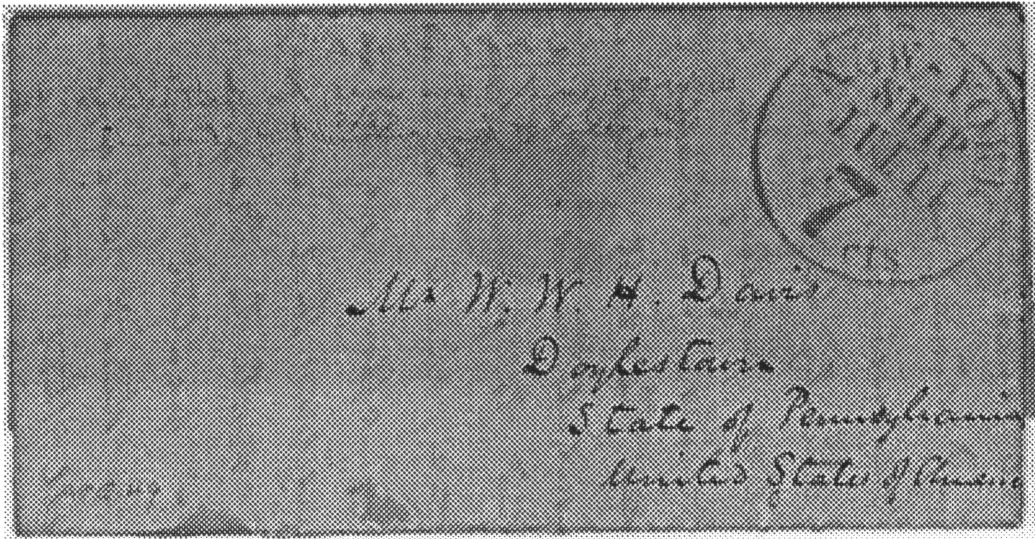 NEW YORK
7
CTS
Mr W. W. H. Davis
Doylestown
State of Pennsylvania
United States of Ameri